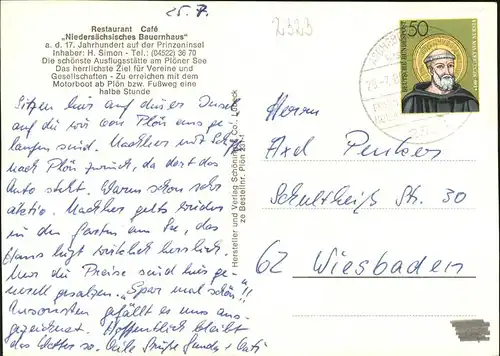 25. 7.
2323
Restaurant Café
„Niedersächsisches Bauernhaus"
a. d. 17. Jahrhundert auf der Prinzeninsel
Inhaber: H. Simon - Tel.: (04522) 36 70
Die schönste Ausflugsstätte am Plöner See
Das herrlichste Ziel für Vereine und
Gesellschaften - Zu erreichen mit dem
Motorboot ab Plön bzw. Fußweg eine
halbe Stunde
Sitzen hier auf dieser Insel
auf die wir von Plön aus ge-
laufen sind. Nachher mit Schiff
nach Plön zurück, da dort das
Auto steht. Darum schon sehr
Nachher gehts wieder
in den Garten am See, das
Haus liegt wirklich herrlich.
Nur die Preise sind hier ge-
nerell gesalzen. „Spar mal schön"!!
Ansonsten gefällt es uns aus-
gezeichnet. Hoffentlich bleibt
das Wetter so. Viele Grüße
Hersteller und Verlag Schöning & Co., Lübeck
Bestellnr. Plön 231
50
DEUTSCHE BUNDESPOST
Herrn
Axl Penkes
Schultheiß Str. 30
62 Wiesbaden